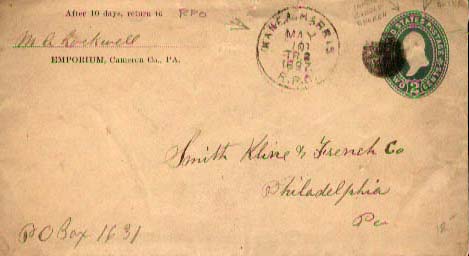 After 10 days, return to RPO
M A Rockwell
EMPORIUM, Cameron Co., PA.
KANE & HARRIS
MAY
10
TR 2
1897
R.P.O.
UNITED STATES POSTAGE
TWO 2 CENTS
Smith Kline & French Co
Philadelphia
Pa
PO Box 1631